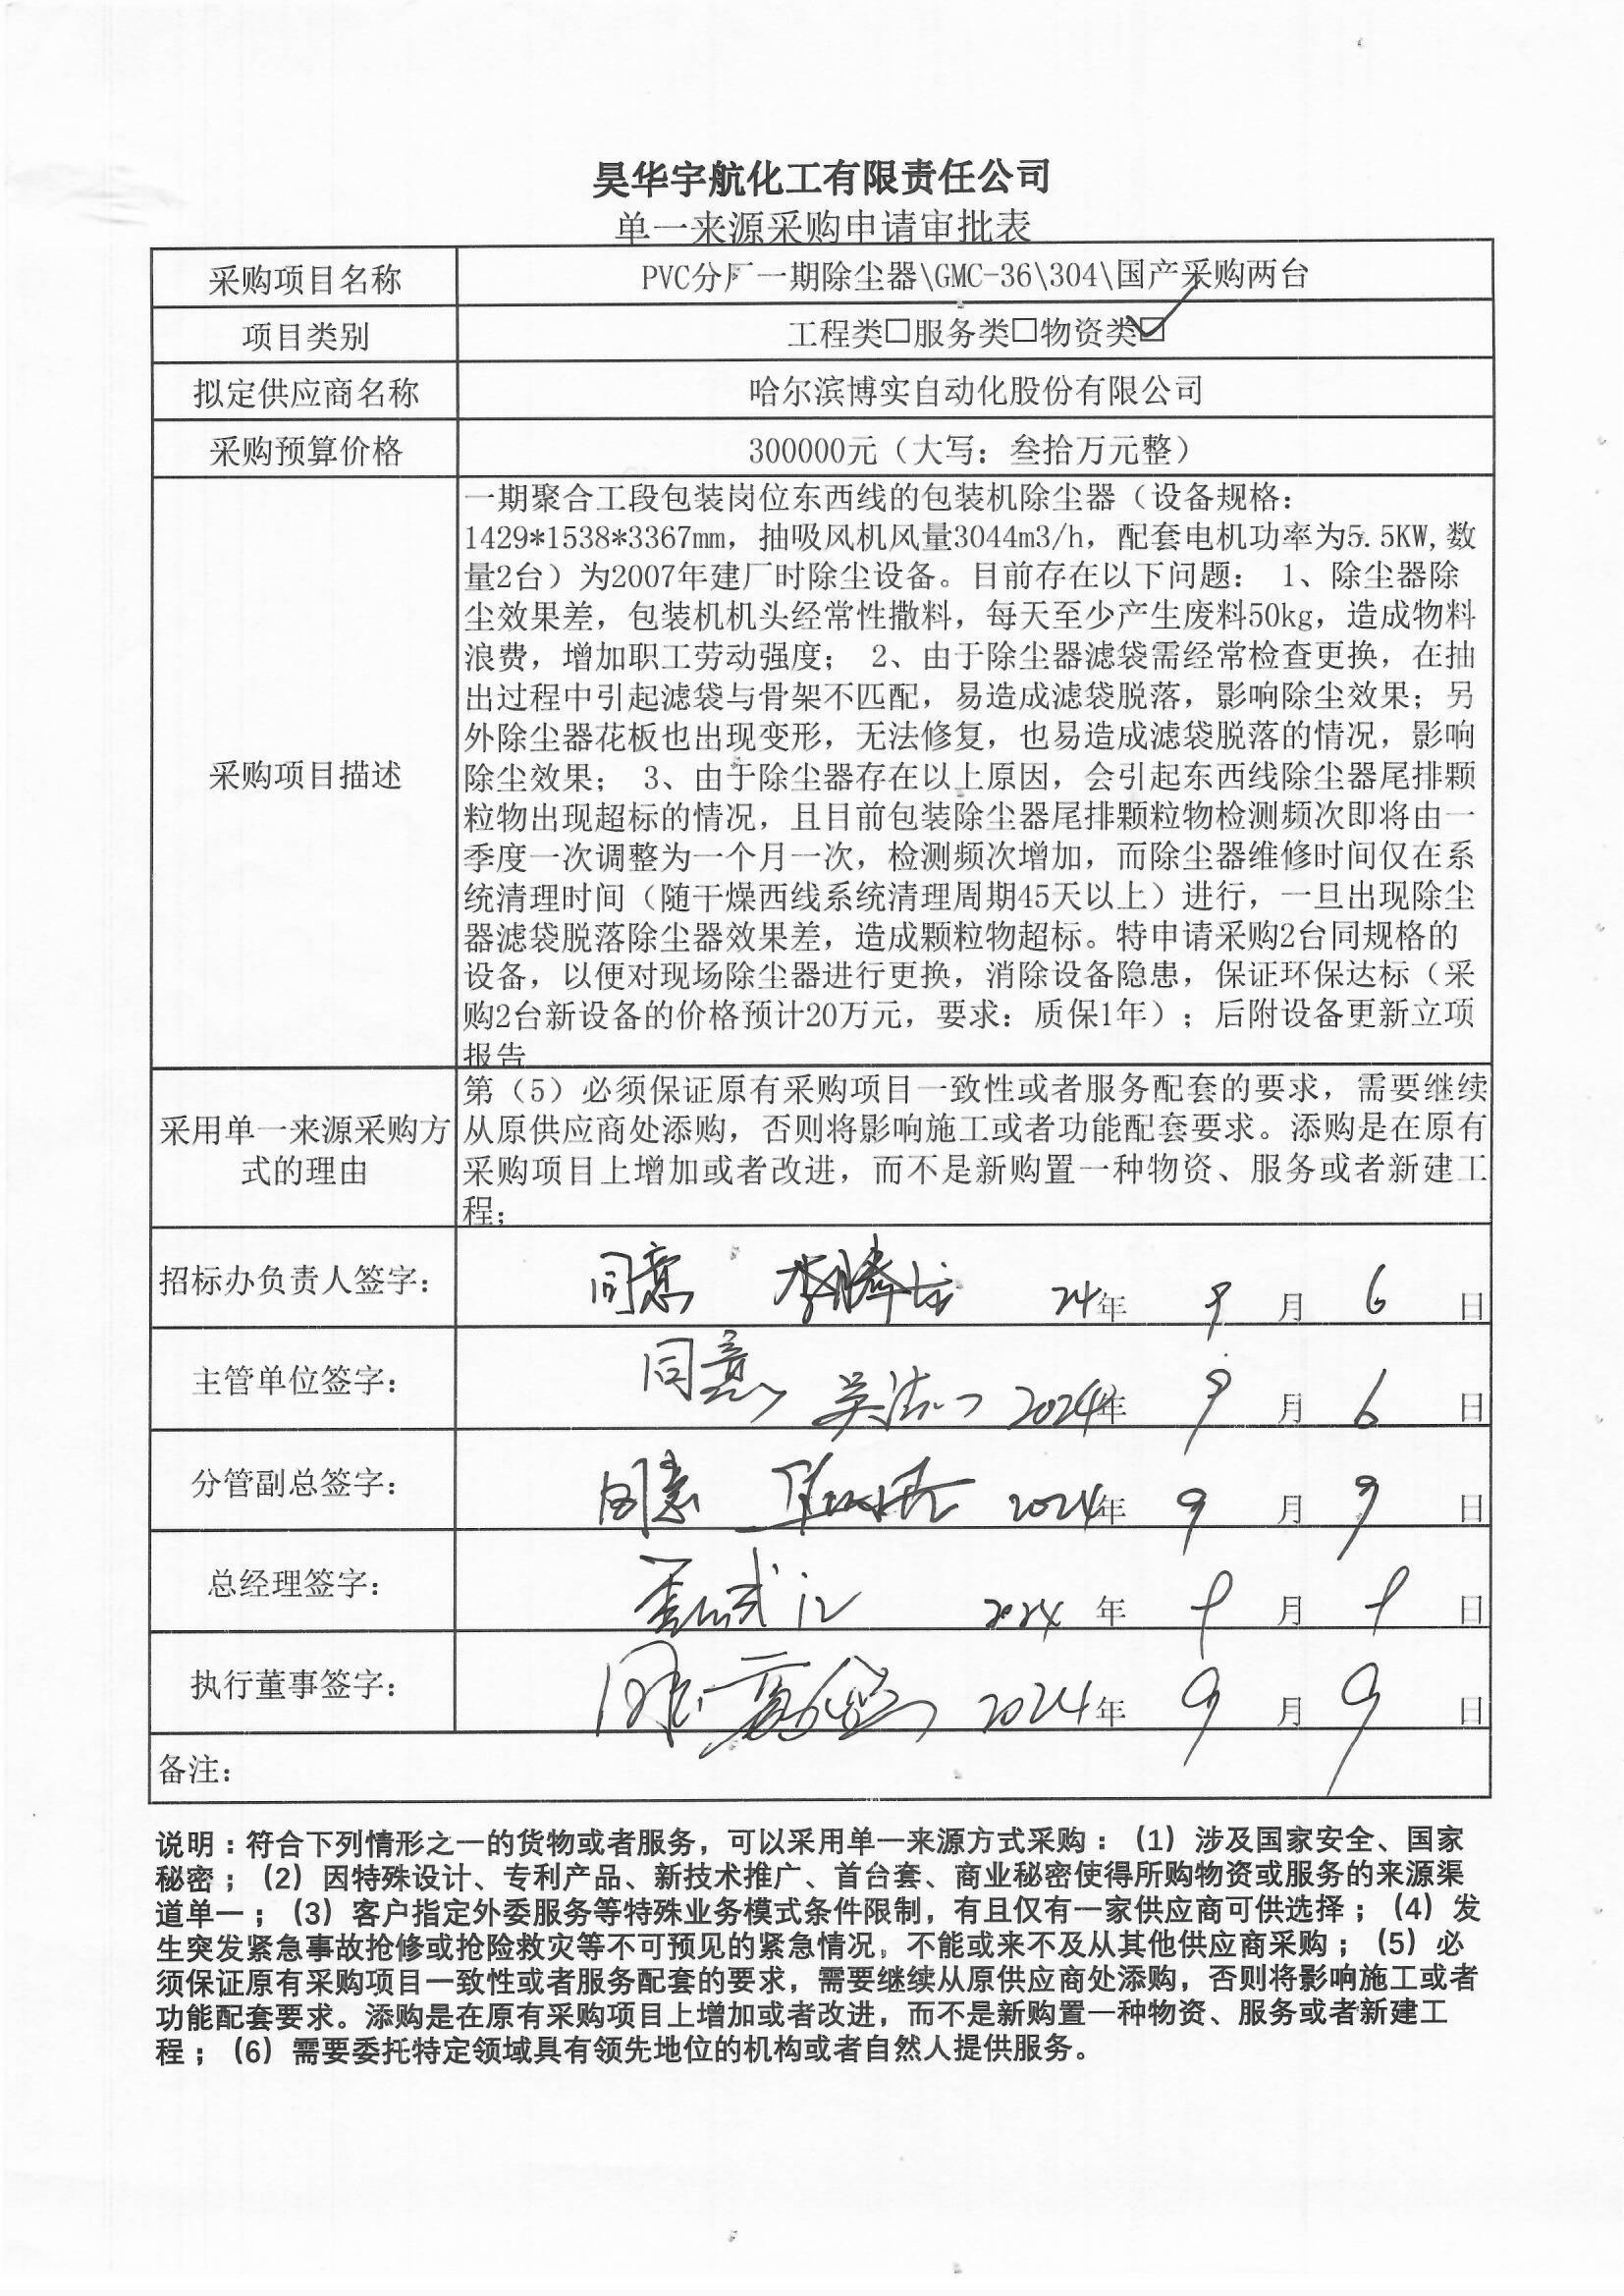 昊华宇航化工有限责任公司
单一来源采购申请审批表
采购项目名称 PVC分厂一期除尘器\GMC-36\304\国产采购两台
项目类别 工程类☐服务类☐物资类☑
拟定供应商名称 哈尔滨博实自动化股份有限公司
采购预算价格 300000元（大写：叁拾万元整）
采购项目描述
一期聚合工段包装岗位东西线的包装机除尘器（设备规格：
1429*1538*3367mm，抽吸风机风量3044m3/h，配套电机功率为5.5KW,数
量2台）为2007年建厂时除尘设备。目前存在以下问题： 1、除尘器除
尘效果差，包装机机头经常性撒料，每天至少产生废料50kg，造成物料
浪费，增加职工劳动强度； 2、由于除尘器滤袋需经常检查更换，在抽
出过程中引起滤袋与骨架不匹配，易造成滤袋脱落，影响除尘效果；另
外除尘器花板也出现变形，无法修复，也易造成滤袋脱落的情况，影响
除尘效果； 3、由于除尘器存在以上原因，会引起东西线除尘器尾排颗
粒物出现超标的情况，且目前包装除尘器尾排颗粒物检测频次即将由一
季度一次调整为一个月一次，检测频次增加，而除尘器维修时间仅在系
统清理时间（随干燥西线系统清理周期45天以上）进行，一旦出现除尘
器滤袋脱落除尘器效果差，造成颗粒物超标。特申请采购2台同规格的
设备，以便对现场除尘器进行更换，消除设备隐患，保证环保达标（采
购2台新设备的价格预计20万元，要求：质保1年）；后附设备更新立项
报告
采用单一来源采购方
式的理由
第（5）必须保证原有采购项目一致性或者服务配套的要求，需要继续
从原供应商处添购，否则将影响施工或者功能配套要求。添购是在原有
采购项目上增加或者改进，而不是新购置一种物资、服务或者新建工
程；
招标办负责人签字： 同意 24年 9月 6日
主管单位签字： 同意 2024年 9月 6日
分管副总签字： 同意 2024年 9月 9日
总经理签字： 2024年 9月 9日
执行董事签字： 同意 2024年 9月 9日
备注：
说明：符合下列情形之一的货物或者服务，可以采用单一来源方式采购：（1）涉及国家安全、国家
秘密；（2）因特殊设计、专利产品、新技术推广、首台套、商业秘密使得所购物资或服务的来源渠
道单一；（3）客户指定外委服务等特殊业务模式条件限制，有且仅有一家供应商可供选择；（4）发
生突发紧急事故抢修或抢险救灾等不可预见的紧急情况，不能或来不及从其他供应商采购；（5）必
须保证原有采购项目一致性或者服务配套的要求，需要继续从原供应商处添购，否则将影响施工或者
功能配套要求。添购是在原有采购项目上增加或者改进，而不是新购置一种物资、服务或者新建工
程；（6）需要委托特定领域具有领先地位的机构或者自然人提供服务。